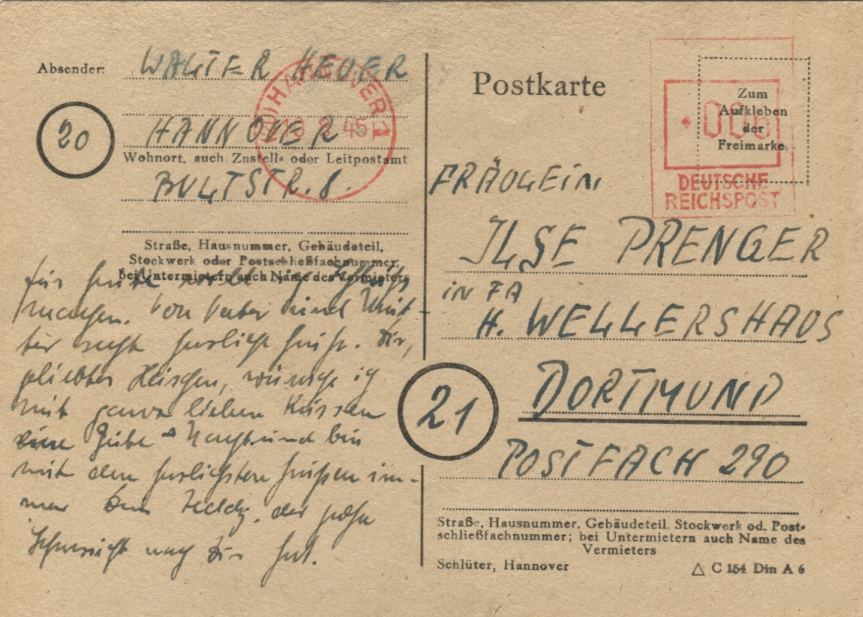 Absender: WALTER HEUER
20
HANNOVER
Wohnort, auch Zustell- oder Leitpostamt
BULTSTR. 8.
Straße, Hausnummer, Gebäudeteil,
Stockwerk oder Postschließfachnummer;
bei Untermietern auch Name des Vermieters
HANNOVER 1
45
Postkarte
Zum
Aufkleben
der
Freimarke
DEUTSCHE
REICHSPOST
FRÄULEIN
ILSE PRENGER
IN FA
H. WELLERSHAUS
21
DORTMUND
POSTFACH 290
Straße, Hausnummer, Gebäudeteil, Stockwerk od. Post-
schließfachnummer; bei Untermietern auch Name des
Vermieters
Schlüter, Hannover
△ C 154 Din A 6
für heute Schluß
machen. Von Vater und Mut-
ter recht herzliche Grüße. Dir,
geliebtes Häschen, wünsche ich
mit ganz lieben Küssen
eine Gute Nacht und bin
mit den herzlichsten Grüßen im-
mer Dein Teddy, der große
Sehnsucht nach Dir hat.